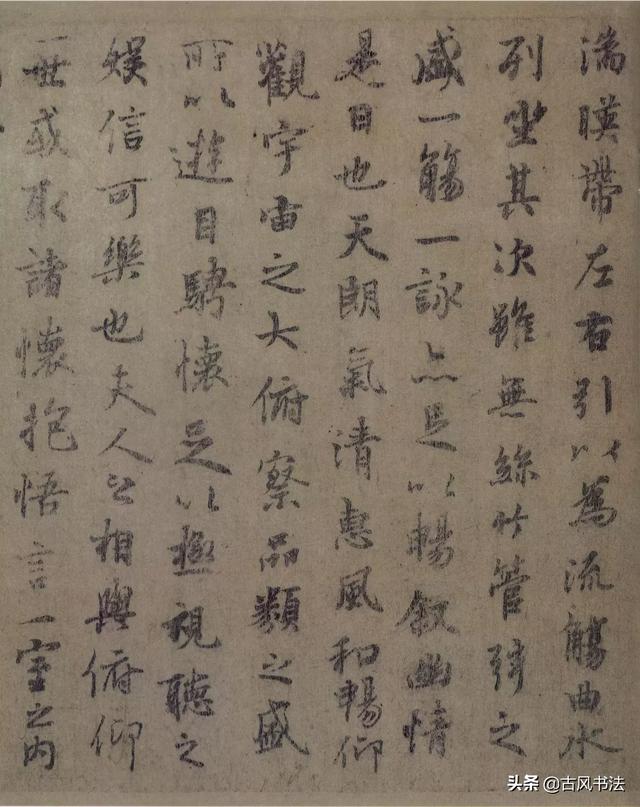 湍暎帶左右引以為流觴曲水
列坐其次雖無絲竹管弦之
盛一觴一詠亦足以暢叙幽情
是日也天朗氣清惠風和暢仰
觀宇宙之大俯察品類之盛
所以遊目騁懷足以極視聽之
娛信可樂也夫人之相與俯仰
一世或取諸懷抱悟言一室之內
头条@古风书法